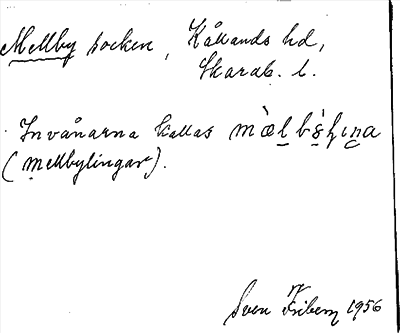 Mellby socken, Kållands hd,
Skarab. l.
Invånarna kallas
(mellbylingar).
Sven Friberg 1956